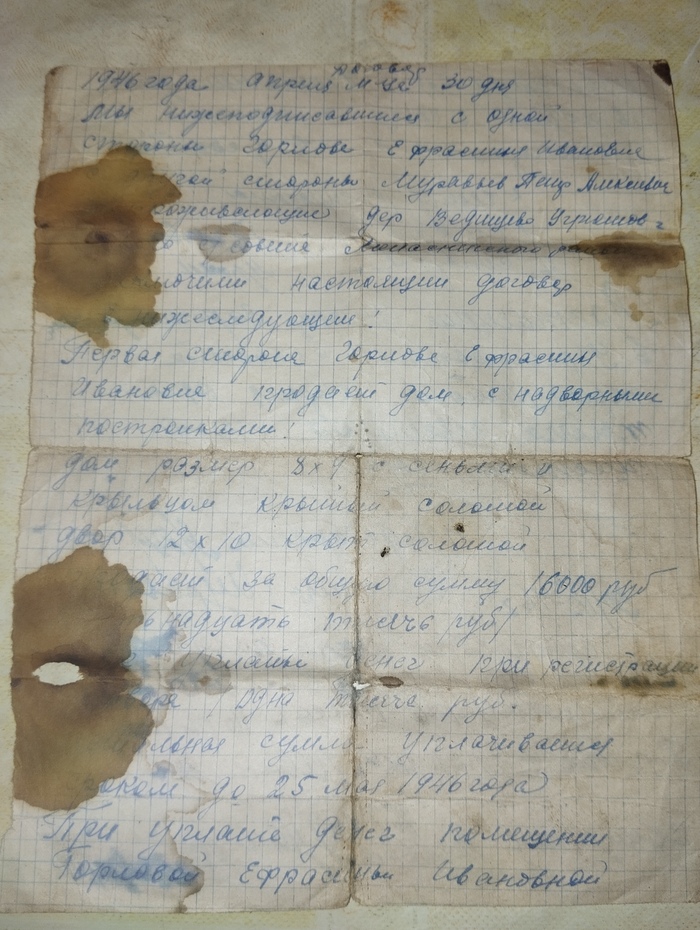 договор
1946 года Апреля м-ца 30 дня
мы нижеподписавшиеся с одной
стороны Горлова Ефрасиния Ивановна
стороны Муравьев Петр Алексеевич
дер Ведищево Угрюмов-
настоящий договор
нижеследующем!
Первая сторона Горлова Ефрасиния
Ивановна продает дом с надворными
постройками!
дом размер 8х9 с сеньями и
крыльцом крытый соломой
двор 12 х 10 крыт соломой
за общую сумму 16000 руб
надцать тысячь руб/
уплаты денег при регистрации
/ одна тысяча руб.
сумма уплачивается
до 25 мая 1946 года)
При уплате денег помещении
Горловой Ефрасиньи Ивановной